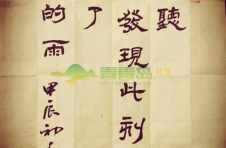 聽
發現此刻
了
的雨
甲辰初
青青岛